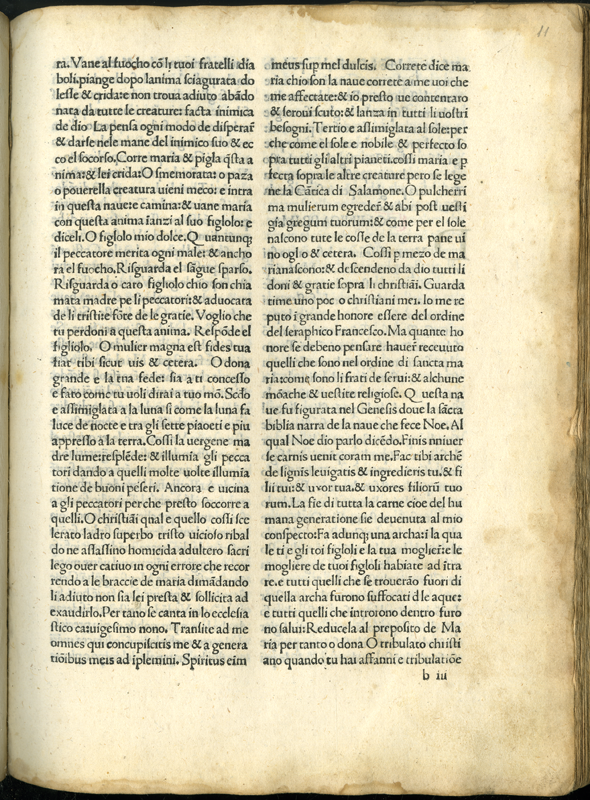 11
ra. Vane al fuocho cō li tuoi fratelli dia
boli. piange dopo lanima sciagurata do
lesse & crida: e non troua adiuto abādo
nata da tutte le creature: facta inimica
de dio La pensa ogni modo de disperar
& darse nele mane del inimico suo & ec
co el socorso. Corre maria & pigla q̄sta a
nima: & lei crida: O smemorata: o paza
o pouerella creatura uieni meco: e intra
in questa naue: e camina: & uane maria
con questa anima ianzi al suo figlolo: e
diceli. O figlolo mio dolce. Quantunq;
il peccatore merita ogni male: & ancho
ra el fuocho. Risguarda el sāgue sparso.
Risguarda o caro figliolo chio son chia
mata madre pe li peccatori: & aduocata
de li tristi: e fōte de le gratie. Voglio che
tu perdoni a questa anima. Respōde el
figliolo. O mulier magna est fides tua
fiat tibi sicut uis & cetera. O dona
grande e la tua fede: sia a ti concesso
e fato come tu uoli dirai a tuo mō. Secōdo
e assimiglata a la luna si come la luna fa
luce de nocte e tra gli sette piaoeti e piu
appresso a la terra. Cossi la uergene ma
dre lume: resplēde: & illumia gli pecca
tori dando a quelli molte uolte illumia
tione de buoni pēseri. Ancora e uicina
a gli peccatori per che presto soccorre a
quelli. O christiāi qual e quello cossi sce
lerato ladro superbo tristo uiciolo ribal
do ne assassino homicida adultero sacri
lego ouer catiuo in ogni errore che recor
rendo a le braccie de maria dimādando
li adiuto non sia lei presta & sollicita ad
exaudirlo. Per tanto se canta in lo ecclesia
stico ca: uigesimo nono. Transite ad me
omnes qui concupiscitis me & a genera
tiōibus meis ad iplemini. Spiritus eim
meus sup mel dulcis. Correte dice ma
ria chio son la naue correte a me uoi che
me affectate: & io presto ue contentaro
& seroui scuto: & lanza in tutti li uostri
besogni. Tertio e assimiglata al sole: per
che come el sole e nobile & perfecto so
pra tutti gli altri pianeti. cossi maria e p
fecta sopra le altre creature pero se lege
ne la Cātica di Salamone. O pulcherri
ma mulierum egreder̄ & abi post uesti
gia gregum tuorum: & come per el sole
nascono tute le cose de la terra pane ui
no oglo & cetera. Cossi p mezo de ma
ria nascono: & descendeno da dio tutti li
doni & gratie sopra li christiāi. Guarda
time uno poco o christiani mei. Io me re
puto ī grande honore essere del ordine
del seraphico Francesco. Ma quanto ho
nore se debeno pensare hauer receuuto
quelli che sono nel ordine di sancta ma
ria: come sono li frati de serui: & alchune
mōache & uestite religiose. Questa na
ue fu figurata nel Genesis doue la sācta
biblia narra de la naue che fece Noe. Al
qual Noe dio parlo dicēdo. Finis vniuer
se carnis uenit coram me. Fac tibi archē
de lignis leuigatis & ingredieris tu. & fi
lii tui: & uxor tua. & uxores filiorū tuo
rum. La fie di tutta la carne cioe del hu
mana generatione sie deuenuta al mio
conspecto: Fa adunq; una archa: ī la qua
le ti e gli toi figloli e la tua moglier: e le
mogliere de tuoi figloli habiate ad ītra
re. e tutti quelli che se trouerāo fuori di
quella archa furono suffocati d le aque:
e tutti quelli che introrono dentro furo
no salui: Reducela al preposito de Ma
ria per tanto o dona O tribulato christi
ano quando tu hai affanni e tribulatiōe
b iii